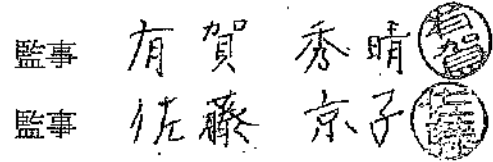 監事 有賀 秀晴 有賀
監事 佐藤 京子 佐藤